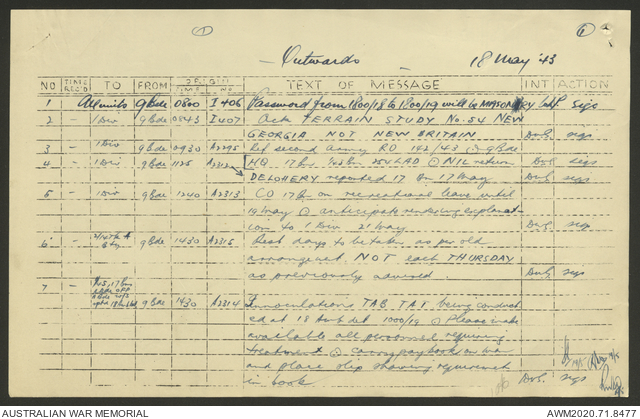 1 1
- Outwards - 18 May '43
NO TIME REC'D TO FROM TIME NO TEXT OF MESSAGE INT ACTION
1 - All units 9 Bde 0800 I 406 Password from 1800/18 to 1800/19 will be MASONRY sigs
2 - 1 Div 9 Bde 0845 I 407 Ack TERRAIN STUDY No. 54 NEW
GEORGIA NOT NEW BRITAIN sigs
3 - 1 Div 9 Bde A2295 Ref second army RO 142/43 9 Bde
4 - 1 Div 9 Bde 1125 HQ 17 Bn NIL return sigs
DELOHERY reported 17 Bn 17 May
5 - 1 Div 9 Bde 1240 A2313 CO 17 Bn on recreational leave until
19 May anticipate rendering explanat-
ion to 1 Div 21 May sigs
6 - 9 Bde 1430 A2315 Rest days to be taken as per old
arrangement NOT each THURSDAY
as previously advised sigs
7 - 9 Bde 1430 A2314 Inoculations TAB TAT being conduct
ed at 18 1000/19 Please make
available all personnel requiring
treatment carry paybook on man
and place slip showing requirement
in book sigs
AUSTRALIAN WAR MEMORIAL AWM2020.71.8477